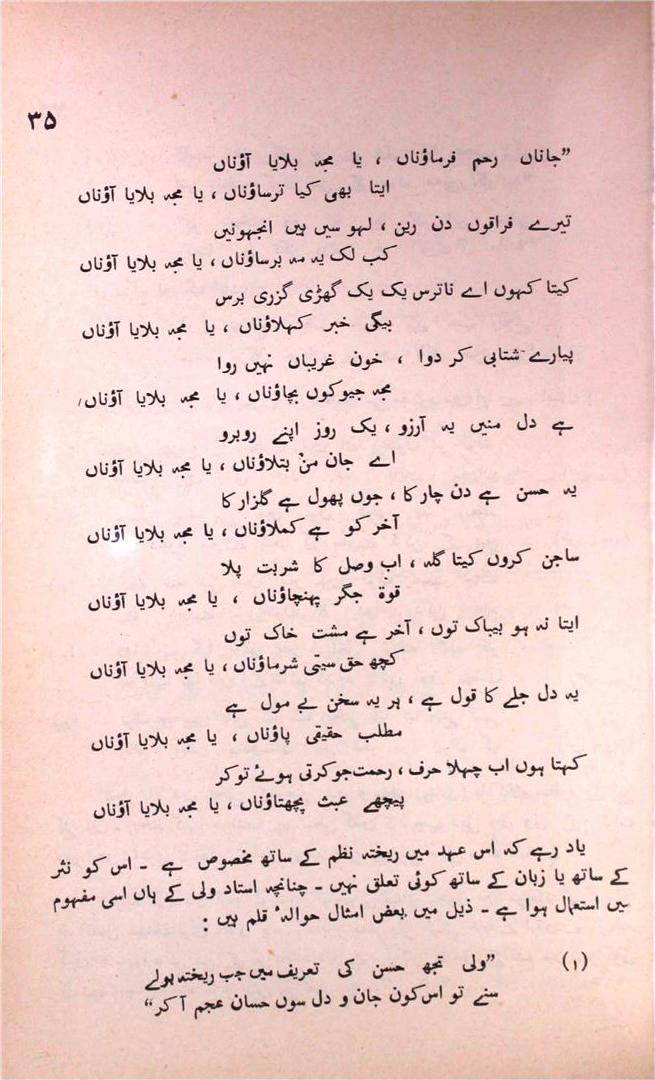 ۳۵
”جاناں رحم فرماؤناں ، یا مجھ بلایا آؤناں
ایتا بھی کیا ترساؤناں ، یا مجھ بلایا آؤناں
تیرے فراقوں دن رین ، لہو سیں ہیں انجھونیں
کب لک یہ مہ برساؤناں ، یا مجھ بلایا آؤناں
کیتا کہوں اے ناترس یک یک گھڑی گزری برس
بیگی خبر کہلاؤناں ، یا مجھ بلایا آؤناں
پیارے شتابی کر دوا ، خون غریباں نہیں روا
مجھ جیوکوں بچاؤناں ، یا مجھ بلایا آؤناں
ہے دل منیں یہ آرزو ، یک روز اپنے روبرو
اے جان من بتلاؤناں ، یا مجھ بلایا آؤناں
یہ حسن ہے دن چار کا ، جوں پھول ہے گلزار کا
آخر کو ہے کملاؤناں ، یا مجھ بلایا آؤناں
ساجن کروں کیتا گلہ ، اب وصل کا شربت پلا
قوۃ جگر پہنچاؤناں ، یا مجھ بلایا آؤناں
ایتا نہ ہو بیباک توں ، آخر ہے مشت خاک توں
کچھ حق سیتی شرماؤناں ، یا مجھ بلایا آؤناں
یہ دل جلے کا قول ہے ، ہر یہ سخن بے مول ہے
مطلب حقیقی پاؤناں ، یا مجھ بلایا آؤناں
کہتا ہوں اب چہلا حرف ، رحمت جو کرتی ہوئے تو کر
پیچھے عبث پچھتاؤناں ، یا مجھ بلایا آؤناں
یاد رہے کہ اس عہد میں ریختہ نظم کے ساتھ مخصوص ہے ۔ اس کو نثر
کے ساتھ یا زبان کے ساتھ کوئی تعلق نہیں ۔ چنانچہ استاد ولی کے ہاں اسی مفہوم
میں استعمال ہوا ہے ۔ ذیل میں بعض امثال حوالۂ قلم ہیں :
(۱) ”ولی تجھ حسن کی تعریف میں جب ریختہ بولے
سنے تو اس کون جان و دل سوں حسان عجم آ کر“